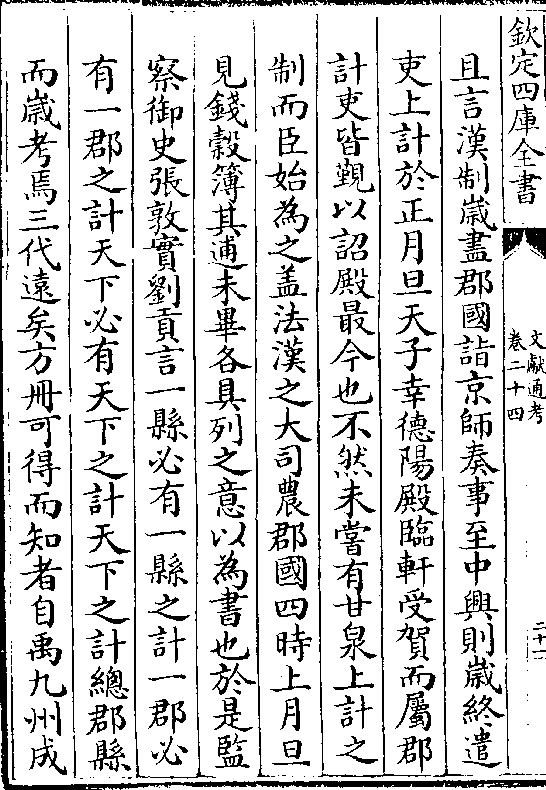 欽定四庫全書
文獻通考
卷二十四
二十一
且言漢制嵗盡郡國詣京師奏事至中興則嵗終遣
吏上計於正月旦天子幸德陽殿臨軒受賀而屬郡
計吏皆覲以詔殿最今也不然未嘗有甘泉上計之
制而臣始為之盖法漢之大司農郡國四時上月旦
見錢穀簿其逋未畢各具列之意以為書也於是監
察御史張敦實劉貢言一縣必有一縣之計一郡必
有一郡之計天下必有天下之計天下之計總郡縣
而嵗考焉三代逺矣方冊可得而知者自禹九州成